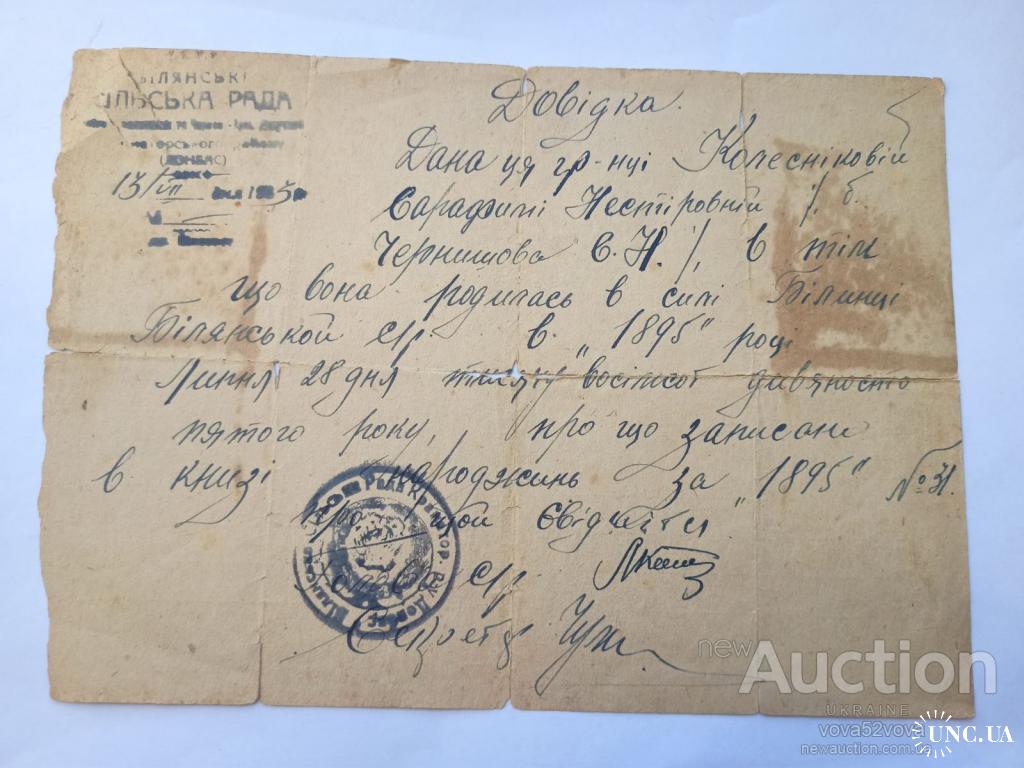 ІЛЯНСЬК
СІЛЬСЬКА РАДА
(ДОНБАС)
13/VII 193
Довідка.
Дана ця гр-нці Колесніковій
Сарафимі Нестіровній /б.
Чернишова С.Н./, в тім
що вона родилась в силі Білинці
Білянськой с/р. в. „1895" році
Липня 28 дня тисячу восімсот дивяносто
пятого року, про що записано
в книзі народжинь за „1895" № 31.
про що й свідчится
Голова с/р.
Секрет
newAuction
UKRAINE
vova52vova
newauction.com.ua
UNC.UA